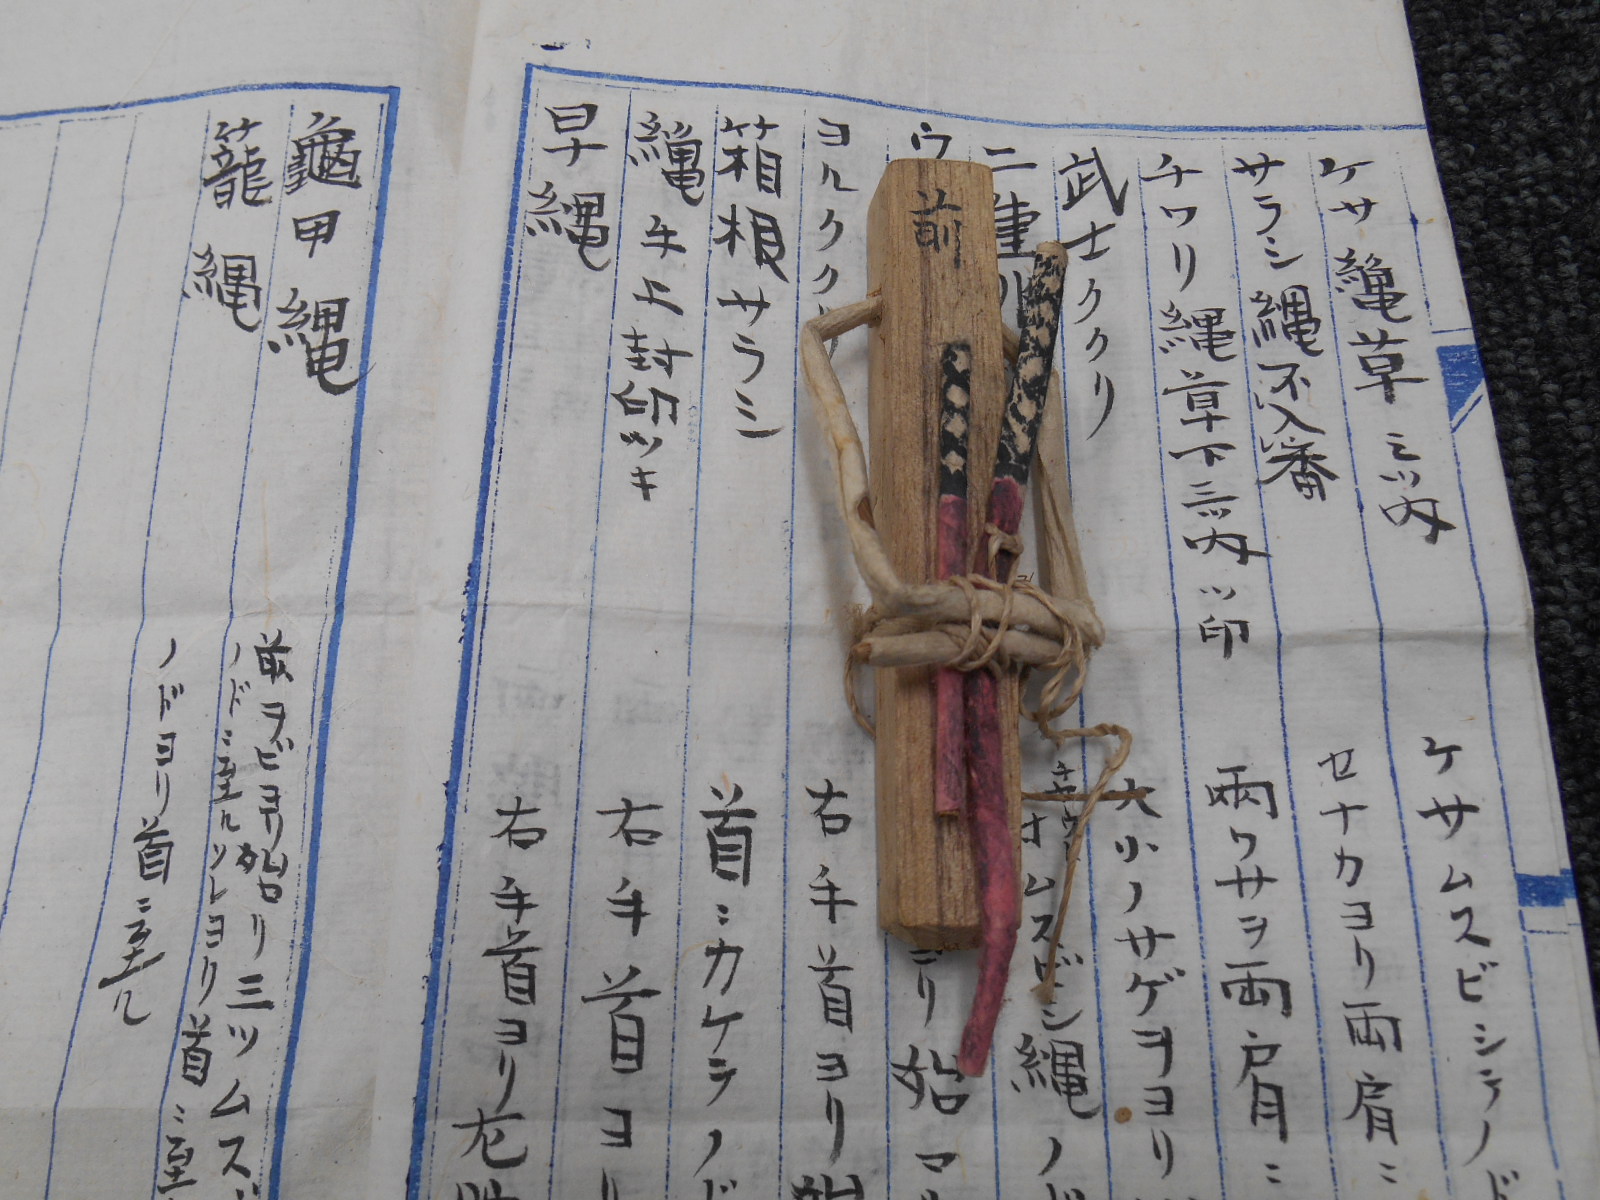 ケサ縄草三ツ内
ケサムスビシテノド
サラシ縄不入番
セナカヨリ両肩ニ
チワリ縄草下三ツ内ツ印
両ワサヲ両肩ニ
武士ククリ
大小ノサゲヲヨリ
二重
ムスビシ縄ノド
ウ
ヨリ始マル
ヨルクク
右手首ヨリ始
箱根サラシ
首ニカケテノド
縄手上封印ツキ
右手首ヨリ
早縄
右手首ヨリ左肱
前
亀甲縄
ヨリ始リ三ツムスビ
ノドニ至ルソレヨリ首ニ至
籠縄
ノドヨリ首ニ至ル